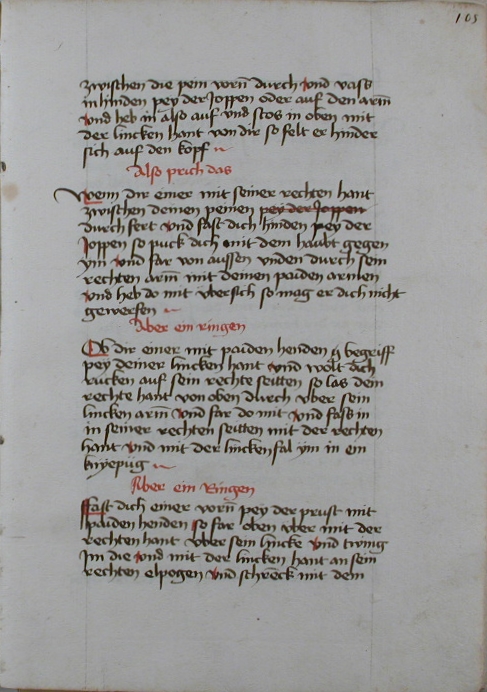 105
zwischen die pein vorn̄ durch vnd vass
in hinden pey der Joppen oder auf den arm̄
vnd heb in also auf vnd stos in oben mit
der lincken hant von dir so felt er hinder
sich auf den kopf
Also prich das
Wenn dir einer mit seiner rechten hant
zwischen deinen peinen pey der Joppen
durch fert vnd fast dich hinden pey der
Joppen so puck dich mit dem haubt gegen
ym vnd far von aussen vnden durch sein
rechten arm̄ mit deinen paiden armen
vnd heb do mit vbersich so mag er dich nicht
gewerfen
Aber ein ringen
Ob dir einer mit paiden henden begriff
pey deiner lincken hant vnd wolt dich
rucken auf sein rechte seitten so las dein
rechte hant von oben durch vber sein
lincken arm̄ vnd far do mit vnd fass in
in seiner rechten seitten mit der rechten
hant vnd mit der lincken fal ym in ein
knyepüg
Aber ein Ringen
Fast dich einer vorn̄ pey der prust mit
paiden henden so far oben vber mit der
rechten hant vber sein lincke vnd twing
Im die vnd mit der lincken hant an sein
rechten elpogen vnd schreck mit dem